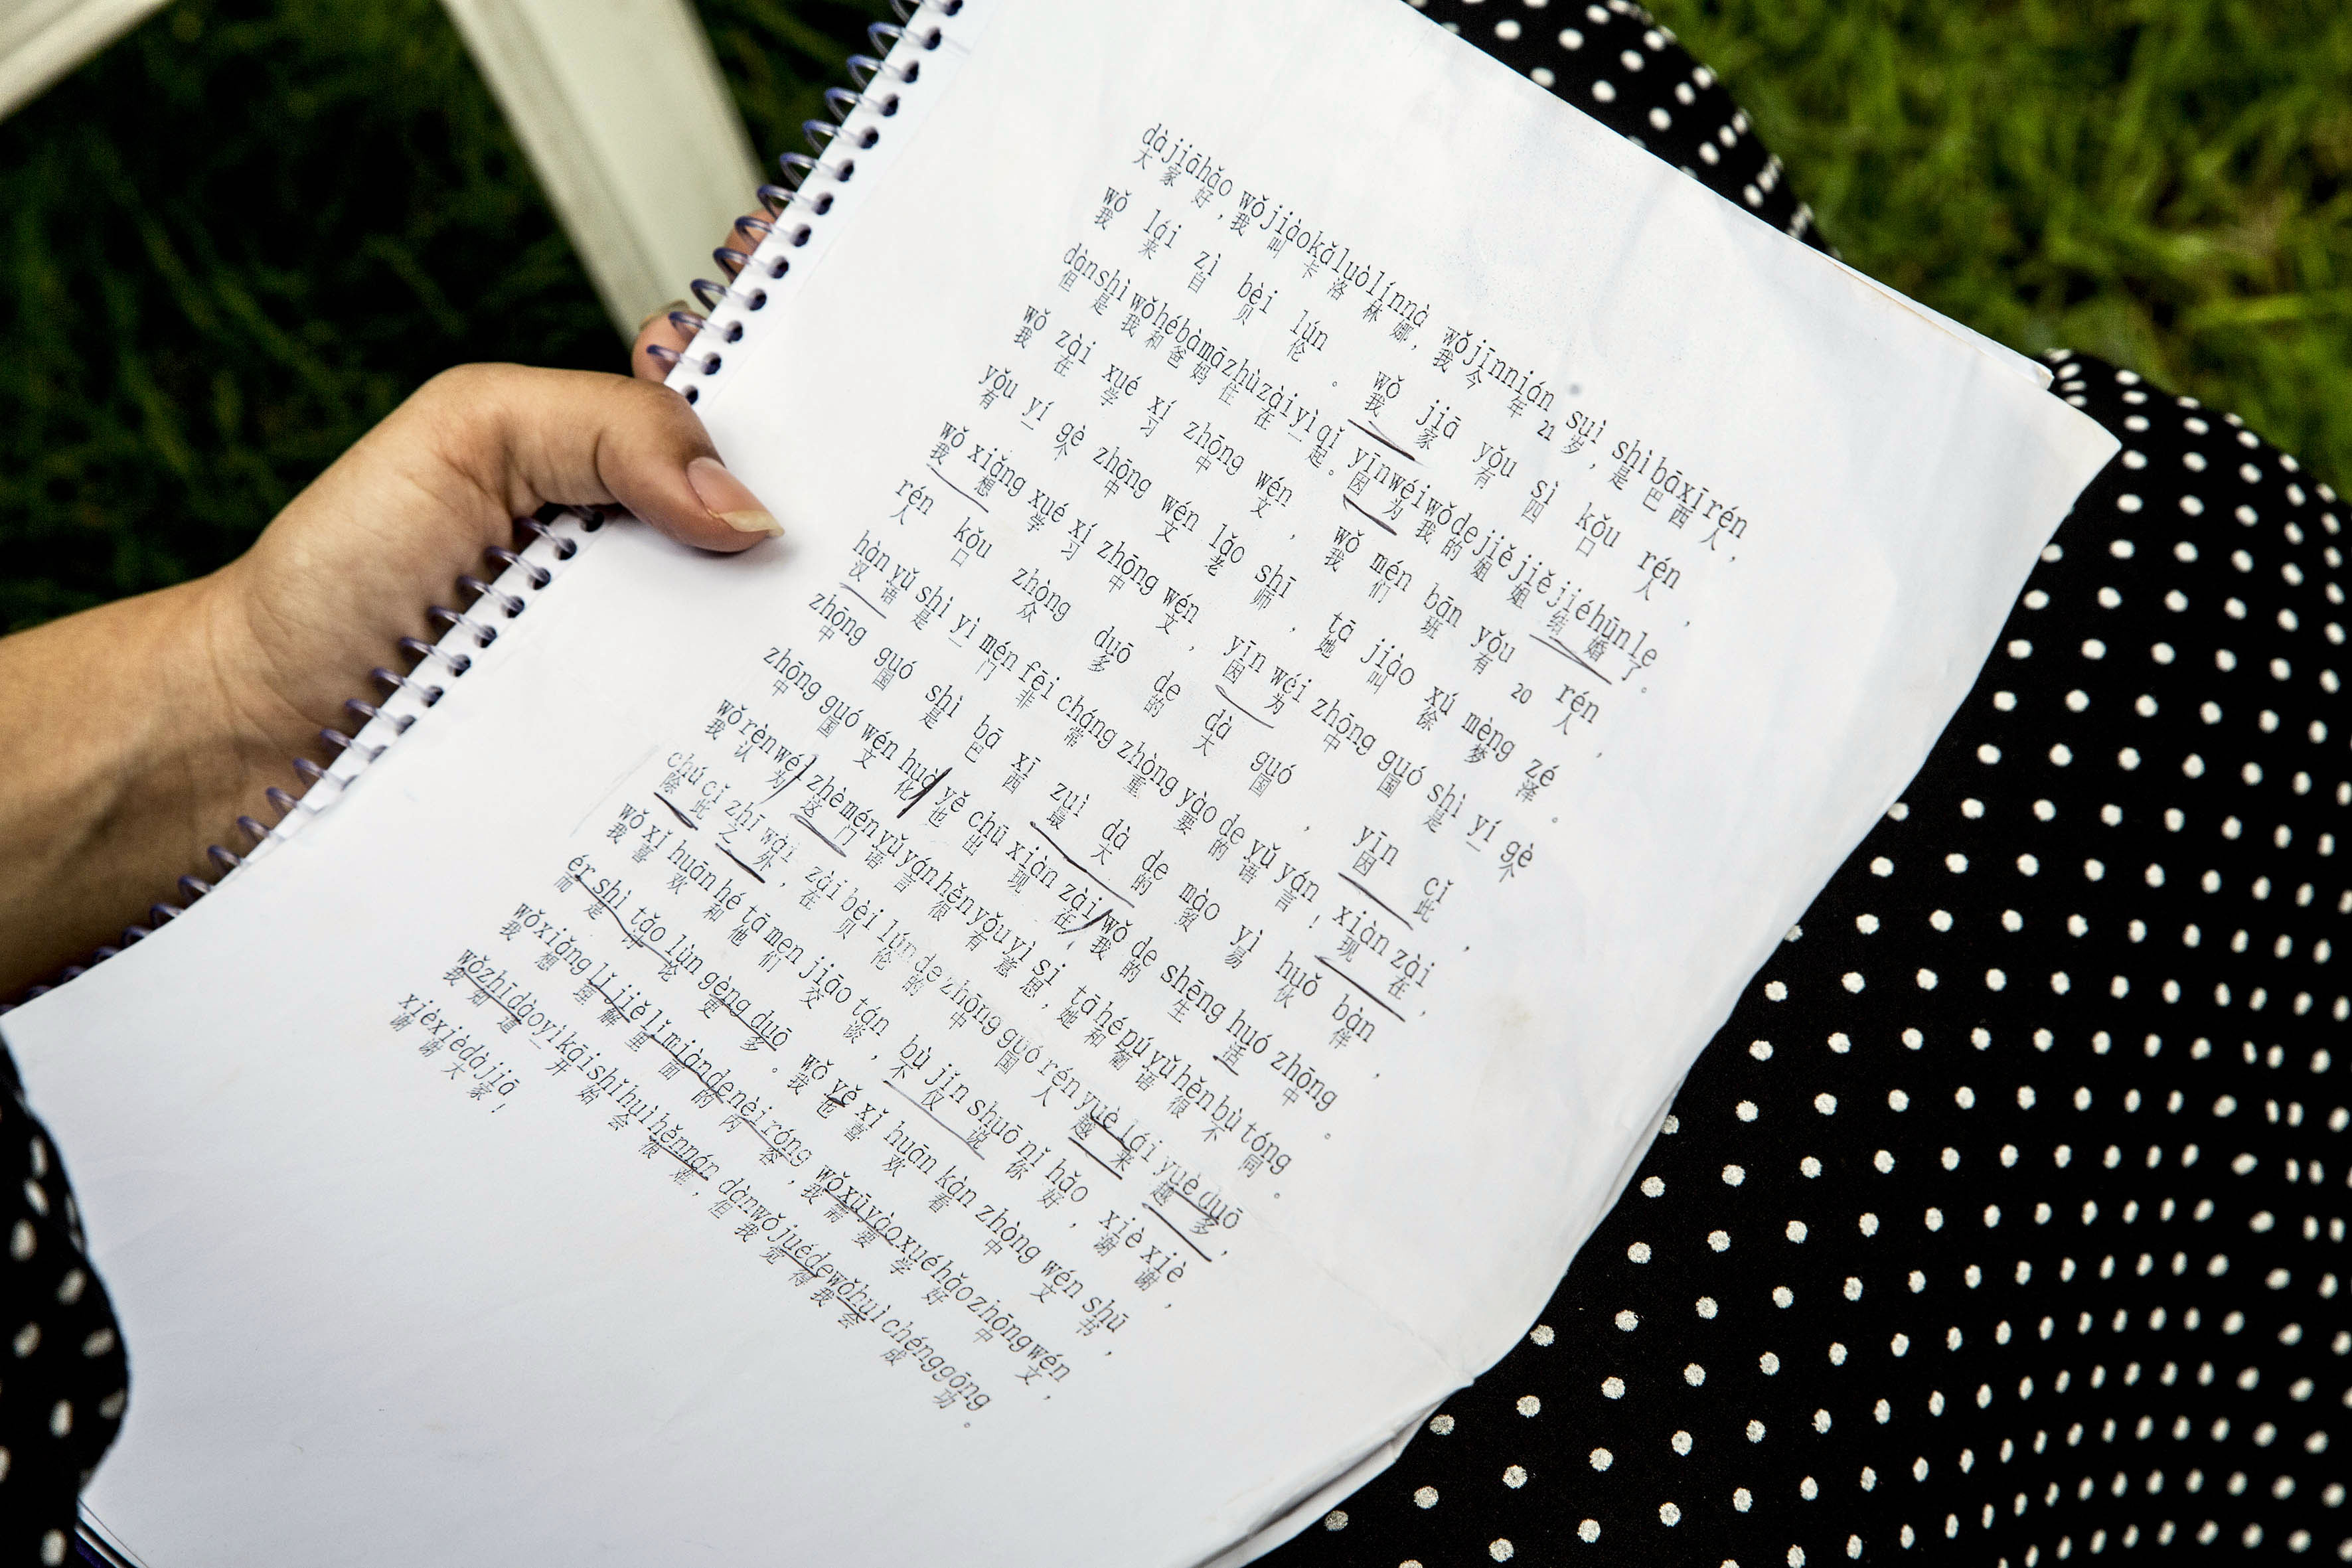 dàjiāhǎo wǒjiàokǎluòlínnà wǒjīnnián suì shìbāxīrén
大家好，我叫卡洛林娜，我今年21岁，是巴西人，
wǒ lái zì bèi lún wǒ jiā yǒu sì kǒu rén
我来自贝伦。我家有四口人，
dànshìwǒhébàmāzhùzàiyìqǐ yīnwéiwǒdejiějiějiéhūnle
但是我和爸妈住在一起。因为我的姐姐结婚了。
wǒ zài xué xí zhōng wén wǒ mén bān yǒu rén
我在学习中文，我们班有20人，
yǒu yí gè zhōng wén lǎo shī tā jiào xú mèng zé
有一个中文老师，她叫徐梦泽。
wǒ xiǎng xué xí zhōng wén yīn wéi zhōng guó shì yí gè
我想学习中文，因为中国是一个
rén kǒu zhòng duō de dà guó yīn cǐ
人口众多的大国，因此，
hàn yǔ shì yì mén fēi cháng zhòng yào de yǔ yán xiàn zài
汉语是一门非常重要的语言！现在，
zhōng guó shì bā xī zuì dà de mào yì huǒ bàn
中国是巴西最大的贸易伙伴，
zhōng guó wén huà yě chū xiàn zài wǒ de shēng huó zhōng
中国文化也出现在，我的生活中。
wǒrènwéi zhèményǔyánhěnyǒuyìsi tāhépúyǔhěnbùtóng
我认为这门语言很有意思，她和葡语很不同。
chú cǐ zhī wài zài bèi lún de zhōng guó rén yuè lái yuè duō
除此之外，在贝伦的中国人越来越多，
wǒ xǐ huān hé tā men jiāo tán bù jǐn shuō nǐ hǎo xiè xiè
我喜欢和他们交谈，不仅说你好，谢谢，
ér shì tǎo lùn gèng duō wǒ yě xǐ huān kàn zhòng wén shū
而是讨论更多。我也喜欢看中文书，
wǒxiǎng lǐjiělǐmiàndenèiróng wǒxūyàoxuéhǎozhōngwén
我想理解里面的内容，我需要学好中文，
wǒzhīdàoyìkāishǐhuìhěnnán dànwǒjuédewǒhuìchénggōng
我知道一开始会很难，但我觉得我会成功。
xièxièdàjiā
谢谢大家！